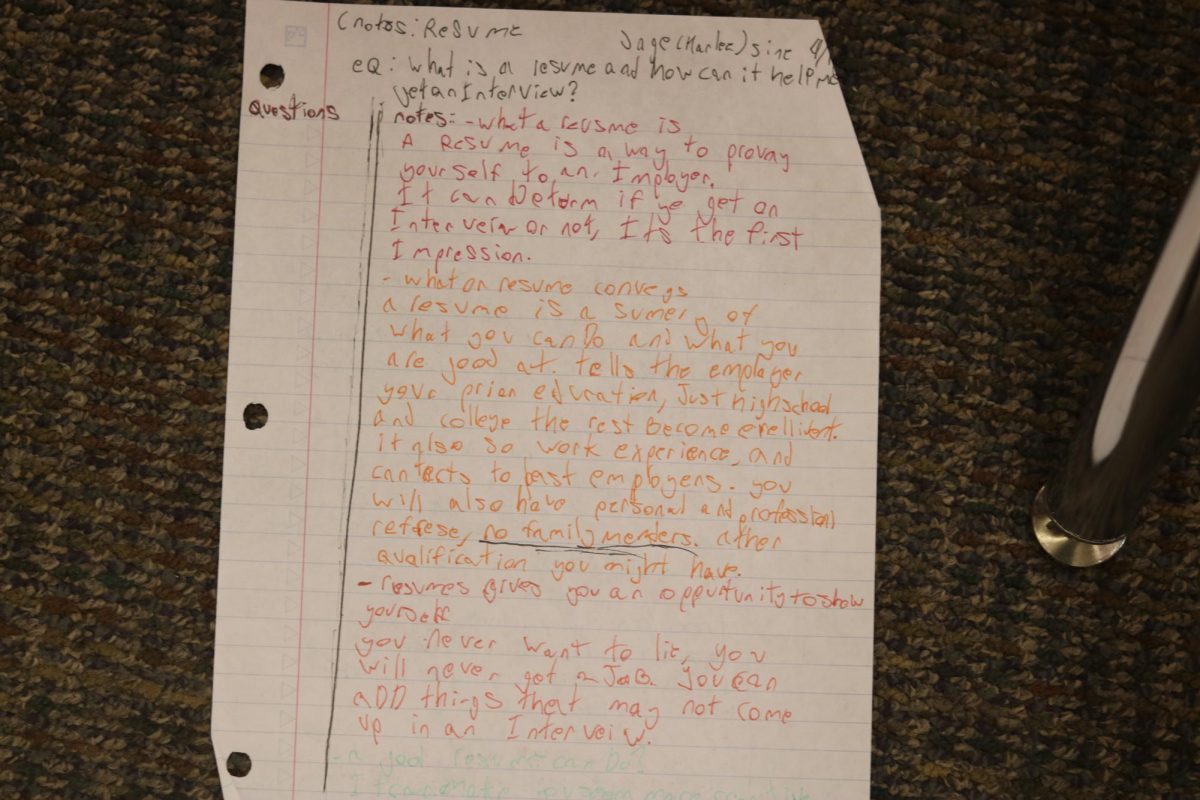 Cnotes: Resume
Jage (Harlee) sine 4/
eQ: what is a resume and how can it help me
get an Interview?
Questions
notes: - what a reusme is
A Resume is a way to provay
yourself to an Imployer.
It can Deturm if ye get an
Interveiw or not, Its the first
Impression.
- what an resume conveys
a resume is a sumery of
what you can Do and what you
are good at. tells the employer
your prian education, Just highschool
and college the rest become erellivent.
it also so work experience, and
cantects to past employers. you
will also have personal and professinl
reffese, no family members. ather
qualification you might have.
- resumes gives you an oppurtunity to show
yourself
you never want to lie, you
will never get a JoB. you can
aDD things that may not come
up in an Interveiw.
- A good resume can Do:
It can make